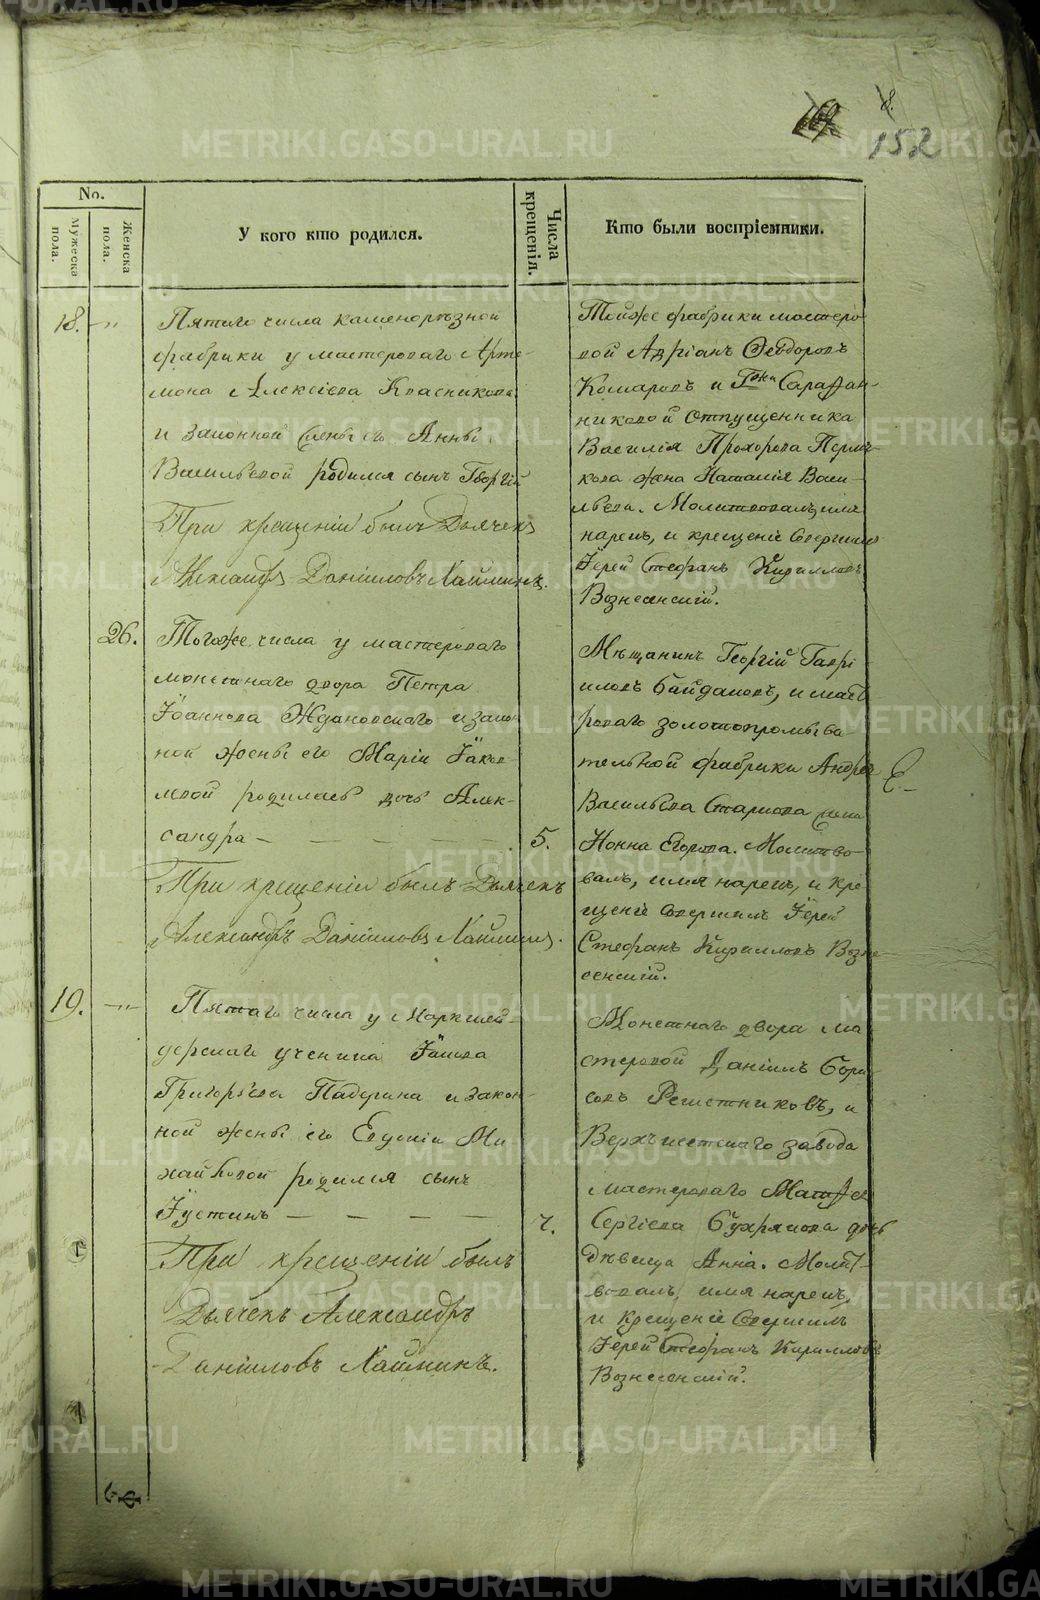 METRIKI.GASO-URAL.RU
8.
152
No.
Мужеска пола.
Женска пола.
У кого кто родился.
Числа крещенія.
Кто были воспріемники.
18. —"
Пятаго числа каменорѣзной
фабрики у мастероваго Арте-
мона Алексіева Красикова
и законной жены его Анны
Васильевой родился сынъ Георгій
При крещеніи былъ Дьячекъ
Александръ Даніиловъ
Тойже фабрики мастеро
вой Адріанъ Ѳеодоровъ
Комаровъ и Гжи Сарафан-
никовой отпущенника
Василія Прохорова
кова жена Наталія Васи-
льева. Молитвовалъ, имя
нарекъ, и крещеніе совершилъ
Іерей Стефанъ Кирилловъ
Вознесенскій.
26.
Тогоже числа у мастероваго
монетнаго двора Петра
Іоаннова Ждановскаго и закон
ной жены его Маріи Іаков-
левой родилась дочь Алек-
сандра —
5.
При крещеніи былъ Дьячекъ
Александръ Даніиловъ
Мѣщанинъ Георгій Гаврі
иловъ Байдаковъ, и масте
роваго золотопромыва
тельной фабрики Андрея
Васильева жена
Нонна Егорова. Молитво-
валъ, имя нарекъ, и кре
щеніе совершилъ Іерей
Стефанъ Кирилловъ Возне-
сенскій.
19. —"—
Пятаго числа у Маркшей-
дерскаго ученика Іакова
Григорьева Падерина и закон-
ной жены его Евдокіи Ми
хайловой родился сынъ
Іустинъ —
7.
При крещеніи былъ
Дьячекъ Александръ
Даніиловъ
Монетнаго двора ма
стеровой Даніилъ Бори
совъ Решетниковъ, и
Верхъисетскаго завода
мастероваго Матфея
Сергіева Бухрякова дочь
дѣвица Анна. Молит-
вовалъ, имя нарекъ,
и крещеніе совершилъ
Іерей Стефанъ Кирилловъ
Вознесенскій.